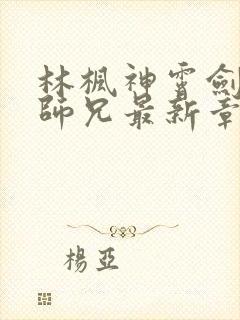 林楓神霄劍
師兄最新章
楊亞